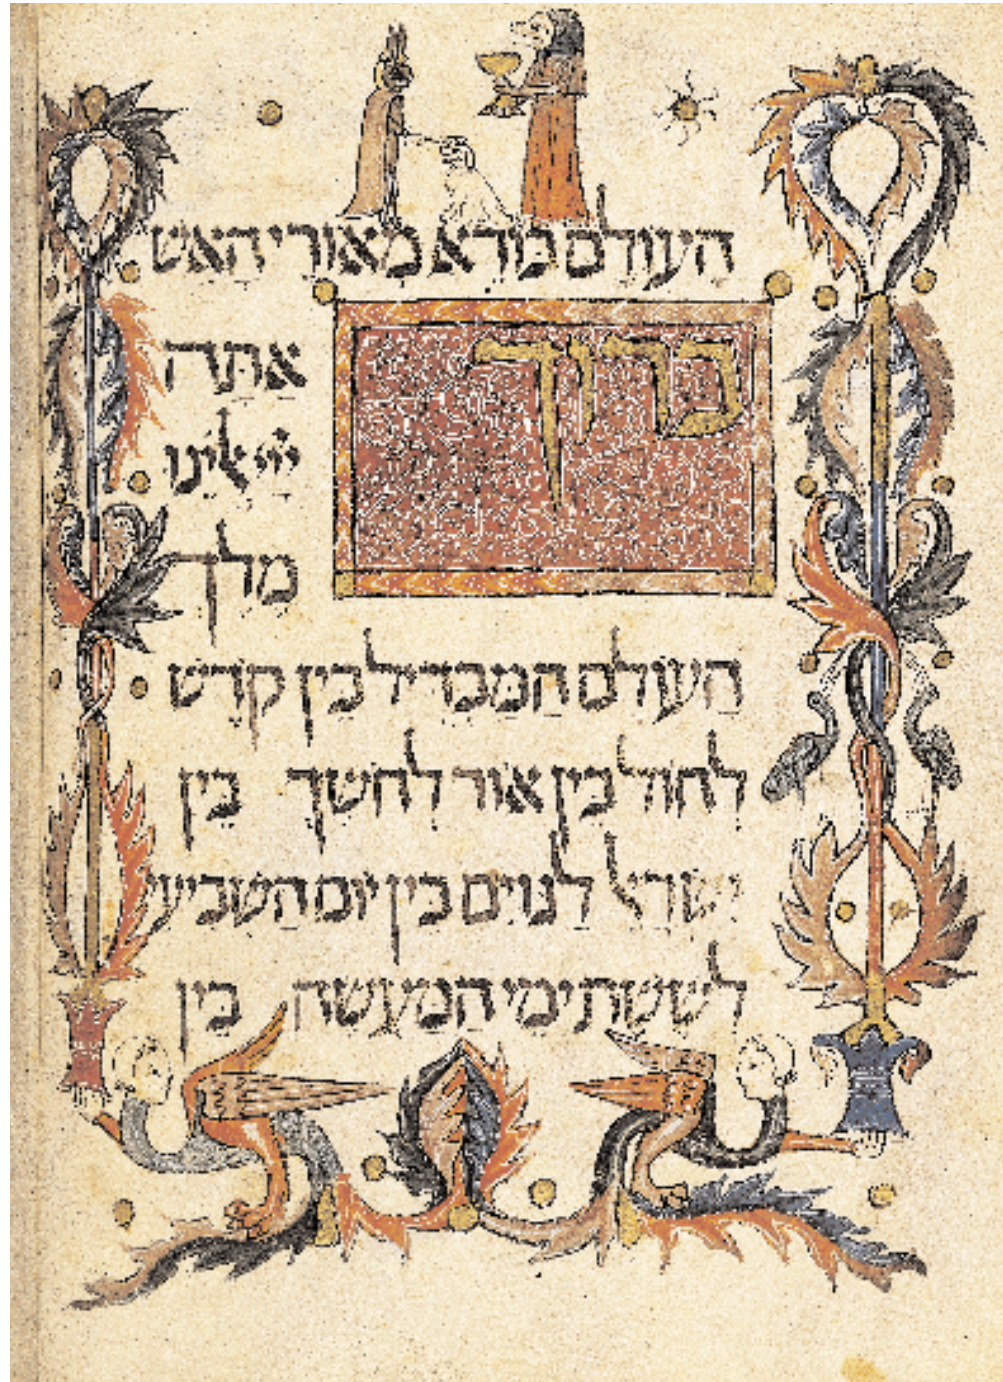 העולם בורא מאורי האש
ברוך
אתה
ייי אלינו
מלך
העולם המבדיל בין קדש
לחול בין אור לחשך בין
ישראל לגוים בין יום השביעי
לששת ימי המעשה בין